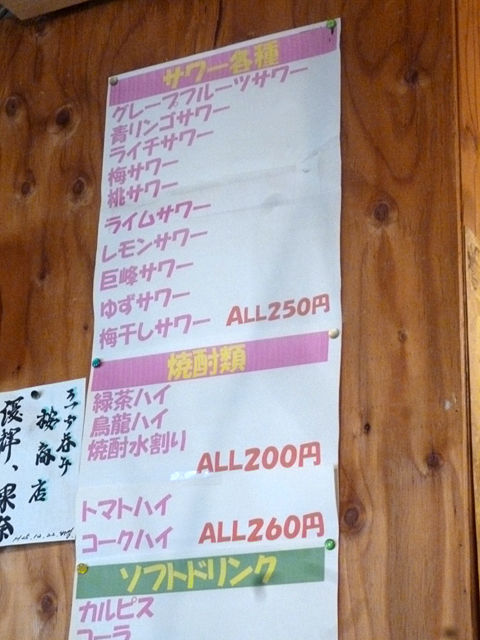 サワー各種
グレープフルーツサワー
青リンゴサワー
ライチサワー
梅サワー
桃サワー
ライムサワー
レモンサワー
巨峰サワー
ゆずサワー
梅干しサワー ALL250円
焼酎類
緑茶ハイ
烏龍ハイ
焼酎水割り
ALL200円
トマトハイ
コークハイ ALL260円
ソフトドリンク
カルピス
コーラ
商店